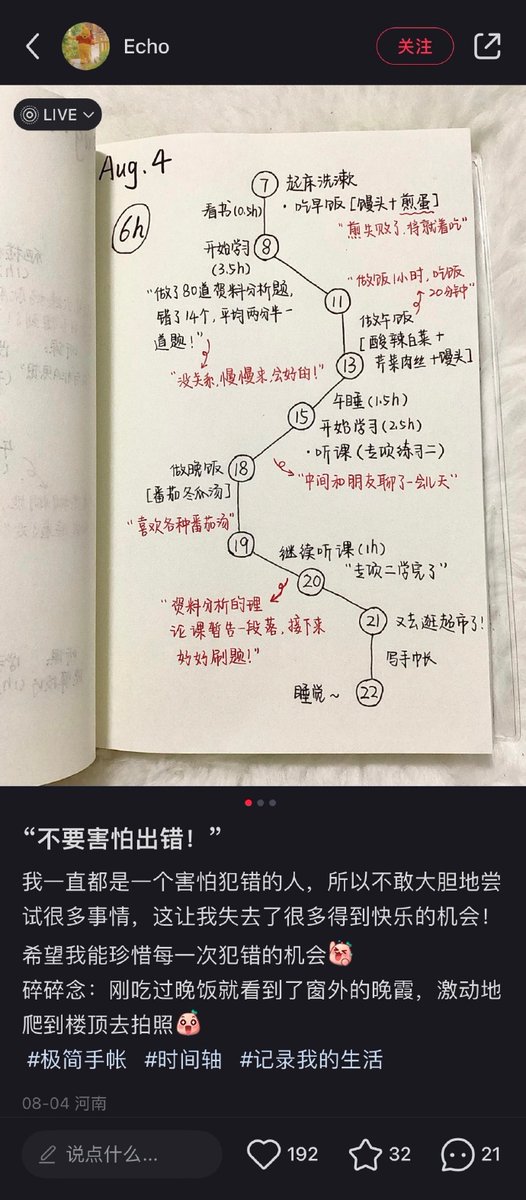 Echo
关注
LIVE
Aug. 4
6h
7 起床洗漱
看书(0.5h)
·吃早饭[馒头+煎蛋]
"煎失败了,将就着吃"
8
开始学习
(3.5h)
"做了80道资料分析题,
错了14个,平均两分半一
道题!"
"没关系,慢慢来,会好的!"
11
"做饭1小时,吃饭
20分钟"
做午饭
[酸辣白菜+
芹菜肉丝+馒头]
13
午睡(1.5h)
15
开始学习(2.5h)
·听课(专项练习二)
"中间和朋友聊了一会儿天"
做晚饭 18
[番茄冬瓜汤]
"喜欢各种番茄汤"
19
继续听课(1h)
"专项二学完了"
20
"资料分析的理
论课暂告一段落,接下来
好好刷题!"
21 又去逛超市了!
写手帐
睡觉~ 22
“不要害怕出错!”
我一直都是一个害怕犯错的人,所以不敢大胆地尝
试很多事情,这让我失去了很多得到快乐的机会!
希望我能珍惜每一次犯错的机会
碎碎念:刚吃过晚饭就看到了窗外的晚霞,激动地
爬到楼顶去拍照
#极简手帐 #时间轴 #记录我的生活
08-04 河南
说点什么...
192
32
21